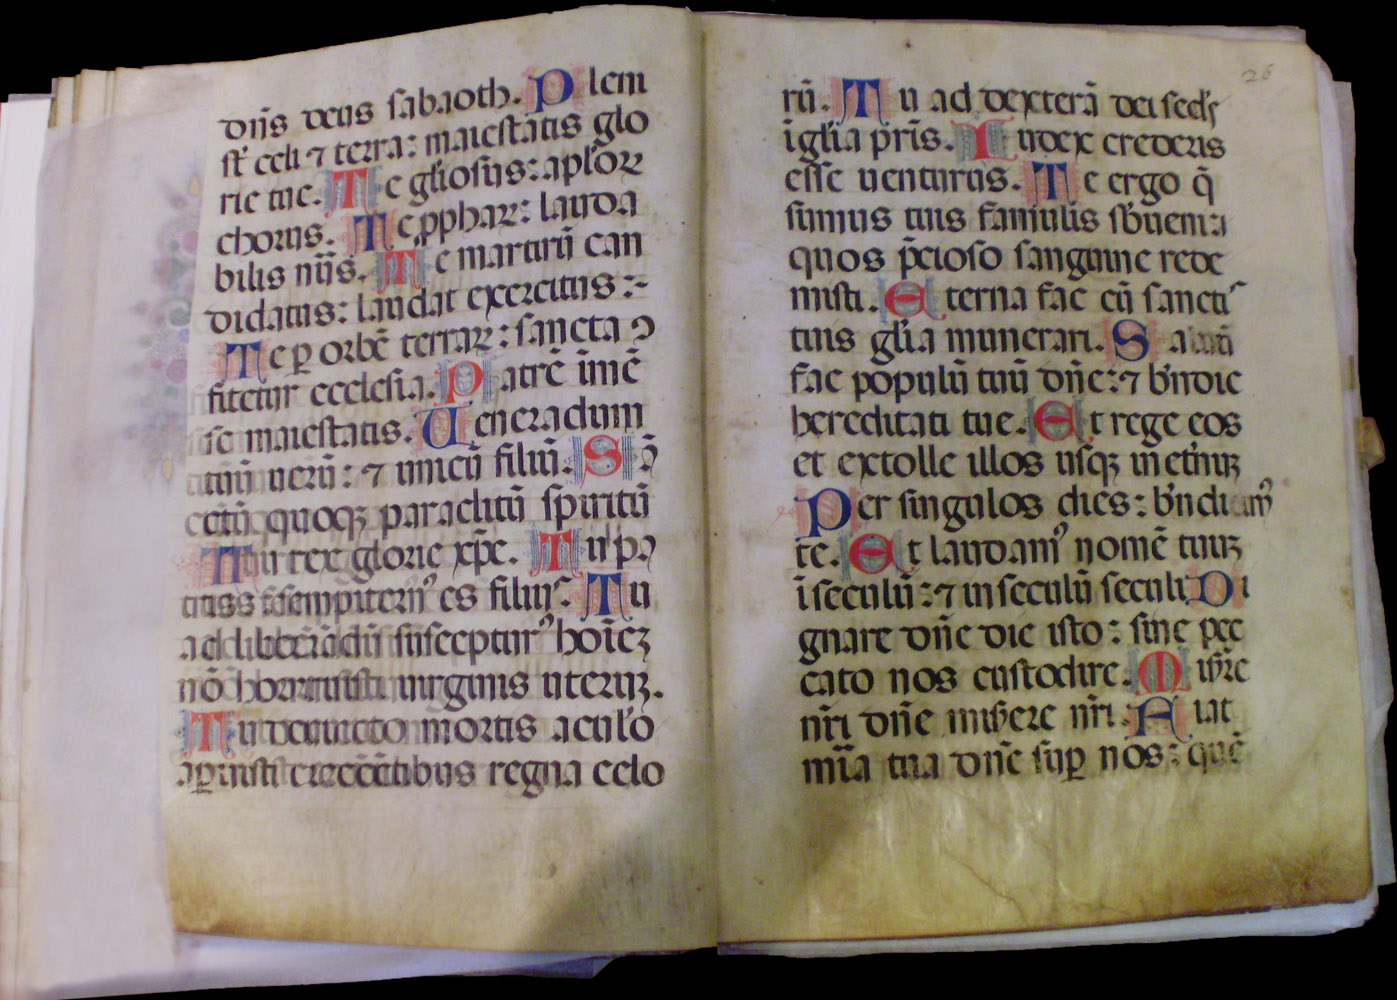 dñs deus sabaoth. Pleni
st̃ celi ⁊ terra: maiestatis glo
rie tue. Te gl̃iosus: apl̃oꝝ
chorus. Te ꝓphaꝝ: lauda
bilis nũs. Te martirũ can
didatus: laudat exercitus:~
Te ꝑ orbẽ terraꝝ: sancta ꝯ
fitetur ecclesia. Patrẽ ĩmẽ
se maiestatis. Uenerãdum
tuũ uerũ: ⁊ unicũ filiũ. Sã
ctũ quoqꝫ paraclitũ spiritũ
Tu rex glorie xp̃e. Tu pa
tris sempiternꝰ es filiꝰ. Tu
ad liberãdũ suscepturꝰ hoĩeꝫ
nõ horruisti uirginis uterũꝫ.
Tu deuicto mortis aculeo
aperuisti credẽtibus regna celo
26
rũ. Tu ad dexterã dei sedes
ĩ gl̃ia pr̃is. Iudex crederis
esse uenturus. Te ergo q̃
sumus tuis famulis sbueni:
quos p̃cioso sanguine rede
misti. Eterna fac cũ sanctis
tuis gl̃ia munerari. Saluũ
fac populũ tuũ dñe: ⁊ bñdic
hereditati tue. Et rege eos
et extolle illos usqꝫ in et̃nuꝫ
Per singulos dies: bñdicimꝰ
te. Et laudamꝰ nomẽ tuuꝫ
ĩ seculũ: ⁊ in seculũ seculi Di
gnare dñe die isto: sine pec
cato nos custodire. Mis̃re
nr̃i dñe mis̃ere nr̃i. Fiat
mĩa tua dñe suꝑ nos: quẽ